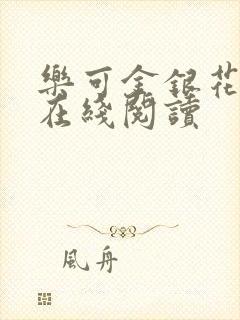 樂可金銀花
在綫閱讀
風舟